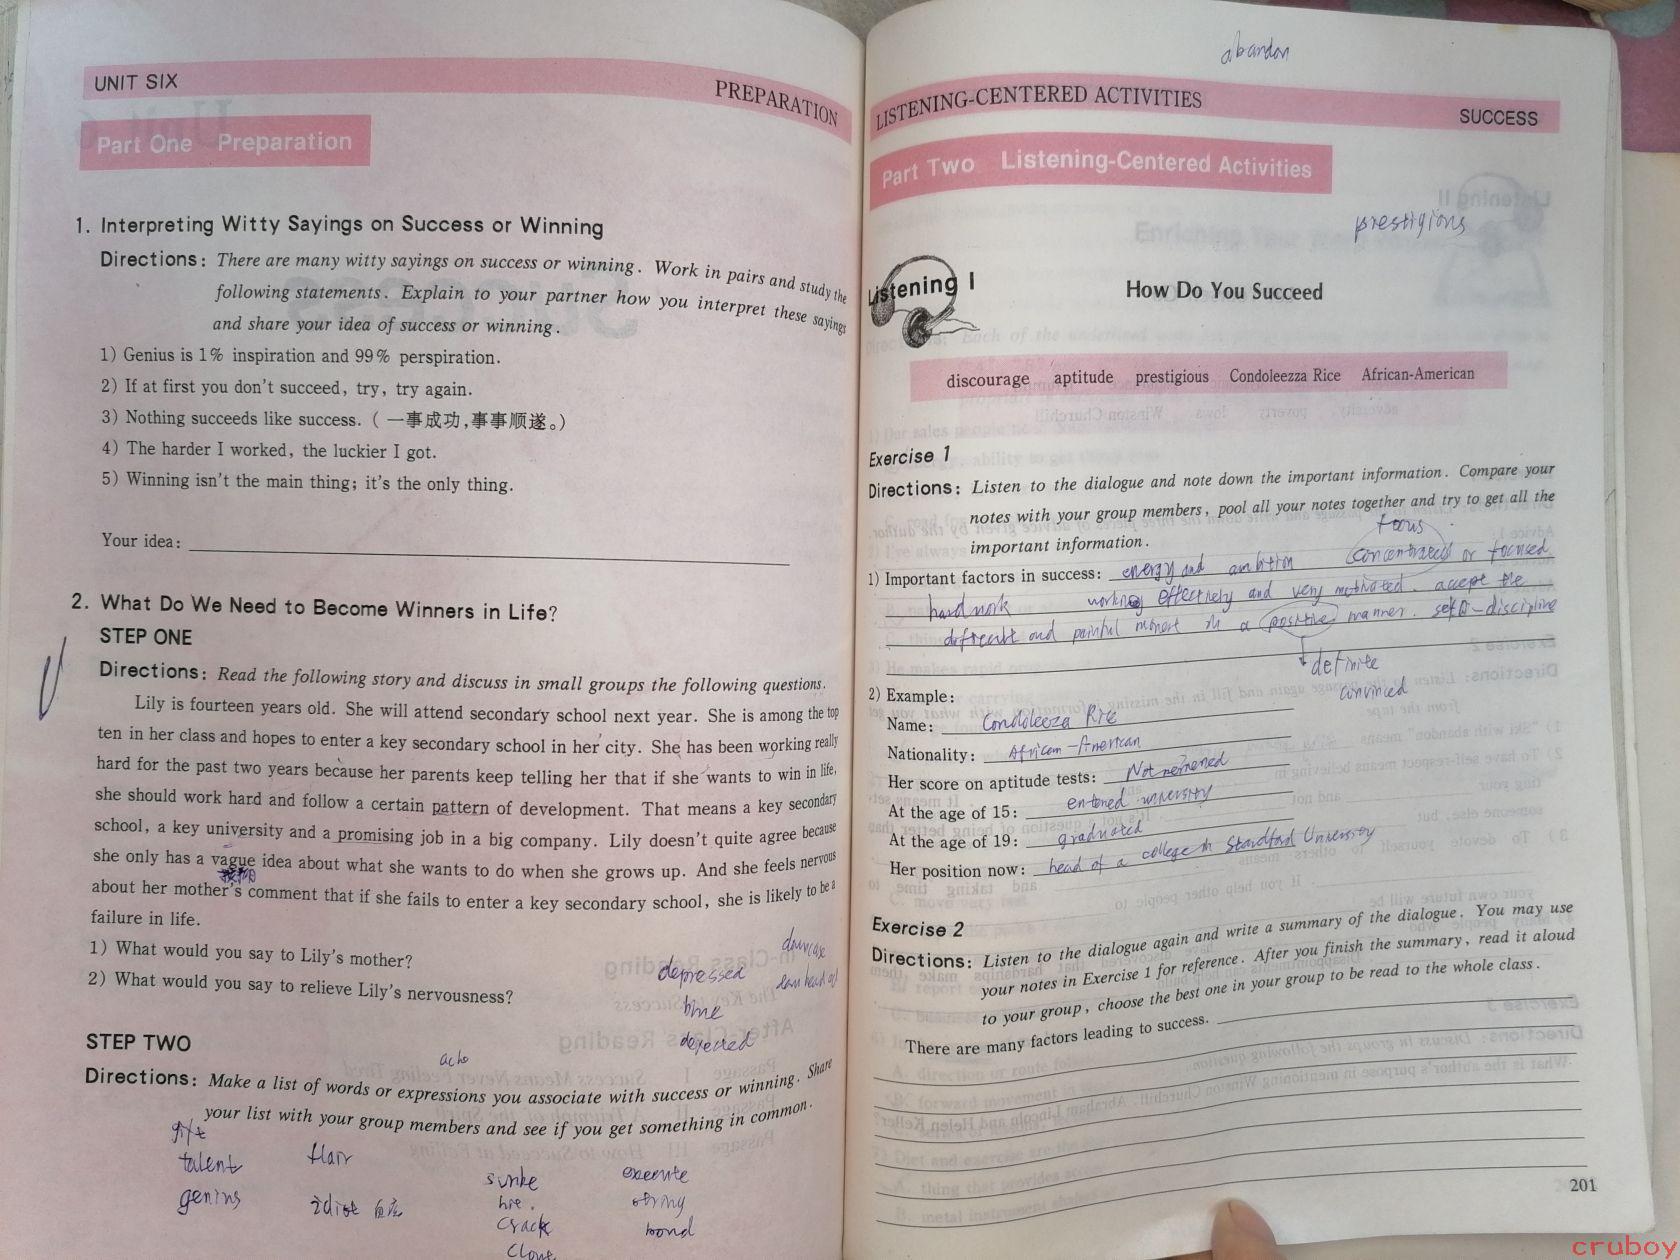 UNIT SIX
PREPARATION
Part One Preparation
1. Interpreting Witty Sayings on Success or Winning
Directions: There are many witty sayings on success or winning. Work in pairs and study the
following statements. Explain to your partner how you interpret these sayings
and share your idea of success or winning.
1) Genius is 1% inspiration and 99% perspiration.
2) If at first you don't succeed, try, try again.
3) Nothing succeeds like success. (一事成功,事事顺遂。)
4) The harder I worked, the luckier I got.
5) Winning isn't the main thing; it's the only thing.
Your idea:
2. What Do We Need to Become Winners in Life?
STEP ONE
Directions: Read the following story and discuss in small groups the following questions.
Lily is fourteen years old. She will attend secondary school next year. She is among the top
ten in her class and hopes to enter a key secondary school in her city. She has been working really
hard for the past two years because her parents keep telling her that if she wants to win in life,
she should work hard and follow a certain pattern of development. That means a key secondary
school, a key university and a promising job in a big company. Lily doesn't quite agree because
she only has a vague idea about what she wants to do when she grows up. And she feels nervous
about her mother's comment that if she fails to enter a key secondary school, she is likely to be a
failure in life.
1) What would you say to Lily's mother?
2) What would you say to relieve Lily's nervousness?
depressed
blue
STEP TWO
Directions: Make a list of words or expressions you associate with success or winning. Share
your list with your group members and see if you get something in common.
talent
flair
genius
execute
string
crack
abandon
LISTENING-CENTERED ACTIVITIES
SUCCESS
Part Two Listening-Centered Activities
prestigious
Listening I
How Do You Succeed
discourage aptitude prestigious Condoleezza Rice African-American
Exercise 1
Directions: Listen to the dialogue and note down the important information. Compare your
notes with your group members, pool all your notes together and try to get all the
important information.
focus
1) Important factors in success: energy and ambition concentrated or focused
hard work working effectively and very motivated. accept the
difficult and painful moment in a positive manner. self-discipline
definite
convinced
2) Example:
Name: Condoleeza Rice
Nationality: African-American
Her score on aptitude tests: Not
At the age of 15: entered university
At the age of 19: graduated
Her position now: head of a college in Standford University
Exercise 2
Directions: Listen to the dialogue again and write a summary of the dialogue. You may use
your notes in Exercise 1 for reference. After you finish the summary, read it aloud
to your group, choose the best one in your group to be read to the whole class.
There are many factors leading to success.
201
cruboy